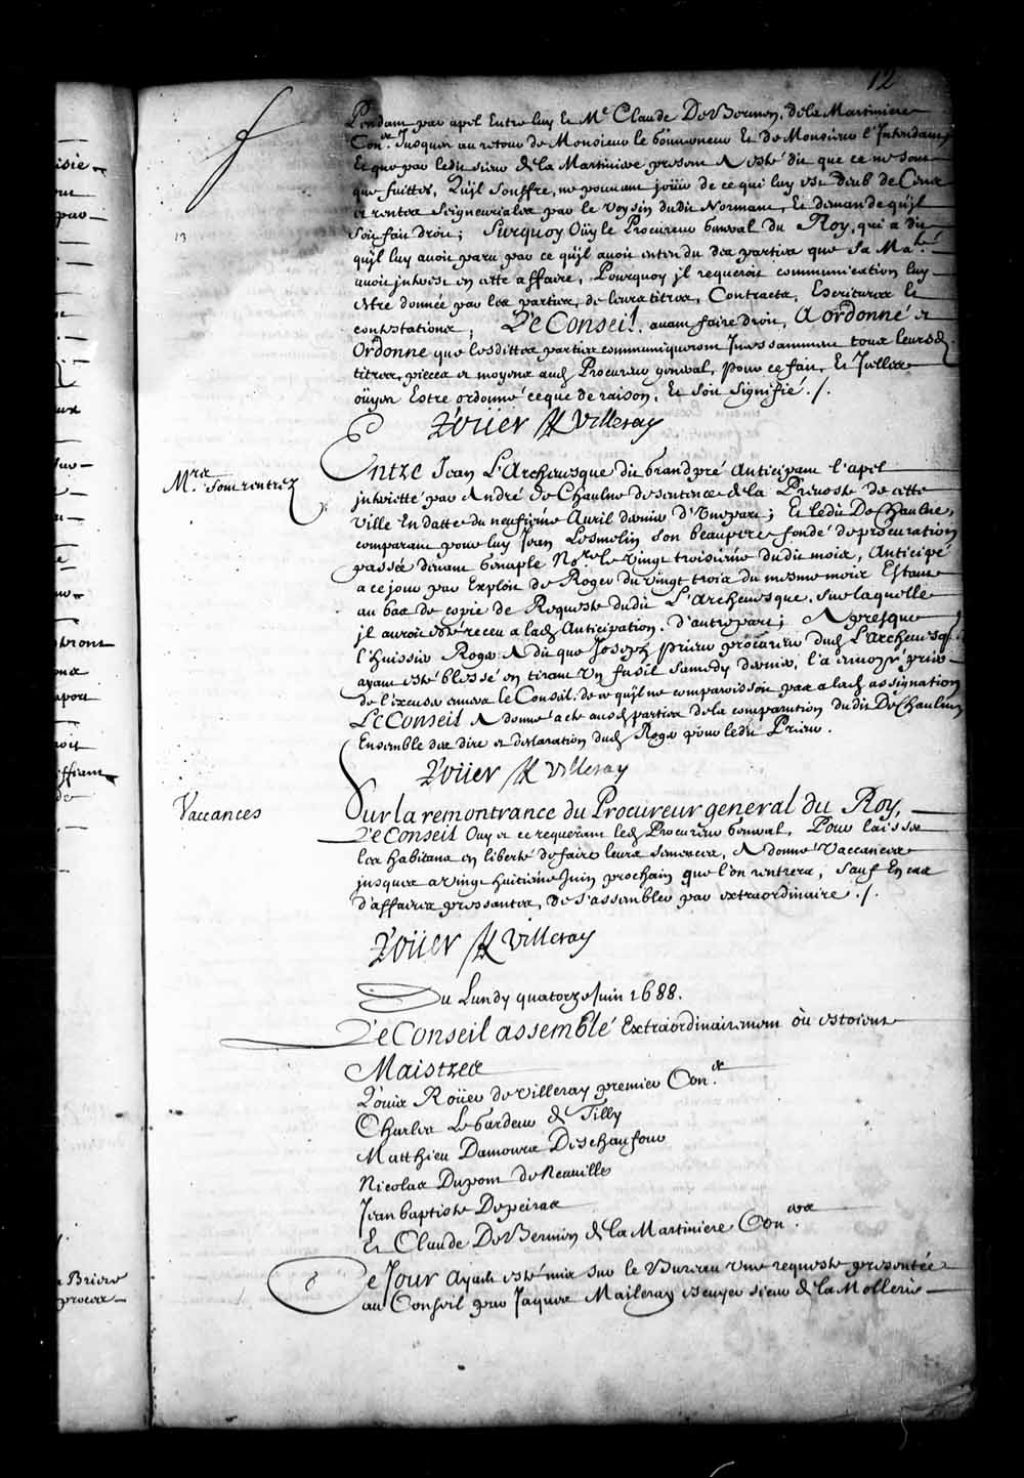 12
Pendam par apel Entre luy Et Me Claude De Bermen, de la Martiniere
Con.er Jusques au retour de Monsieur le Gouverneur Et de Monsieur l'Intendant
Et que par ledit sieur de la Martiniere present A esté dit que ce ne sont
que fuittes, Qu'jl souffre, ne pouvant joüir de ce qui luy est deub de Cens
et rentes seigneuriales par le voysin dudit Normant, Et demande qu'jl
13
soit fait droit; Surquoy Oüy le Procureur General du Roy, qui a dit
qu'jl luy avoit paru par ce qu'jl avoit entendu des parties que Sa Ma.té
avoit jnterest en cette affaire, Pourquoy jl requeroit communication luy
estre donnée par les parties, de leurs titres, Contracts, Escritures Et
contestations; Le Conseil, avant faire droit, A ordonné et
Ordonne que lesdittes parties communiqueront Jncessamment tous leursd.
titres, pieces et moyens aud. Procureur general, pour ce fait, Et Jcelles
oüyes Estre ordonné ce que de raison, Et soit signifié ./.
Roüer de Villeray
Mrs. sont rentrez
Entre Jean L'Archevesque dit Grandpré Anticipant l'apel
jnterietté par André de Chaulne de sentence de la Prevosté de cette
ville En datte du neufieme Avril dernier d'Unepart; Et ledit De Chaulne,
comparant pour luy Jean Lesmelin son beaupere fondé de procuration
passée devant Genaple No.re le vingt troisieme dudit mois, Anticipé
a ce jour par Exploit de Roger du vingt trois du mesme mois Estant
au bas de copie de Requeste dudit L'Archevesque, sur laquelle
jl auroit esté receu a lad. Anticipation, d'autrepart; Apresque
l'huissier Roger A dit que Joseph Prieur procureur dud. L'archevesq.
ayant esté blessé en tirant Un fusil samedy dernier, l'a envoyé prier
de l'excuser envers le Conseil, de ce qu'jl ne comparoissoit pas a lad. assignation
Le Conseil A donné acte ausd. parties de la comparution dudit De Chaulne
Ensemble des dire et declaration dud. Roger pour ledit Prieur.
Roüer de Villeray
Vaccances
Sur la remontrance du Procureur general du Roy,
Le Conseil Ouy et ce requerant led. Procureur General, Pour laisser
les habitans en liberté de faire leurs semences, A donné Vaccances
jusques a vingt huitieme Juin prochain que l'on rentrera, sauf En cas
d'affaires pressantes, de s'assembler par extraordinaire ./.
Roüer de Villeray
Du Lundy quatorze Juin 1688.
Le Conseil assemblé Extraordinairement où estoient
Maistres
Loüis Roüer de Villeray premier Con.er
Charles Le Gardeur de Tilly
Matthieu Damours Deschaufour
Nicolas Dupont de Neuville
Jean baptiste Depeiras
Et Claude De Bermen de la Martiniere Con.ers
Ce Jour Ayant esté mis sur le Bureau une requeste presentée
au Conseil par Jaques Maileray escuyer sieur de la Mollerie